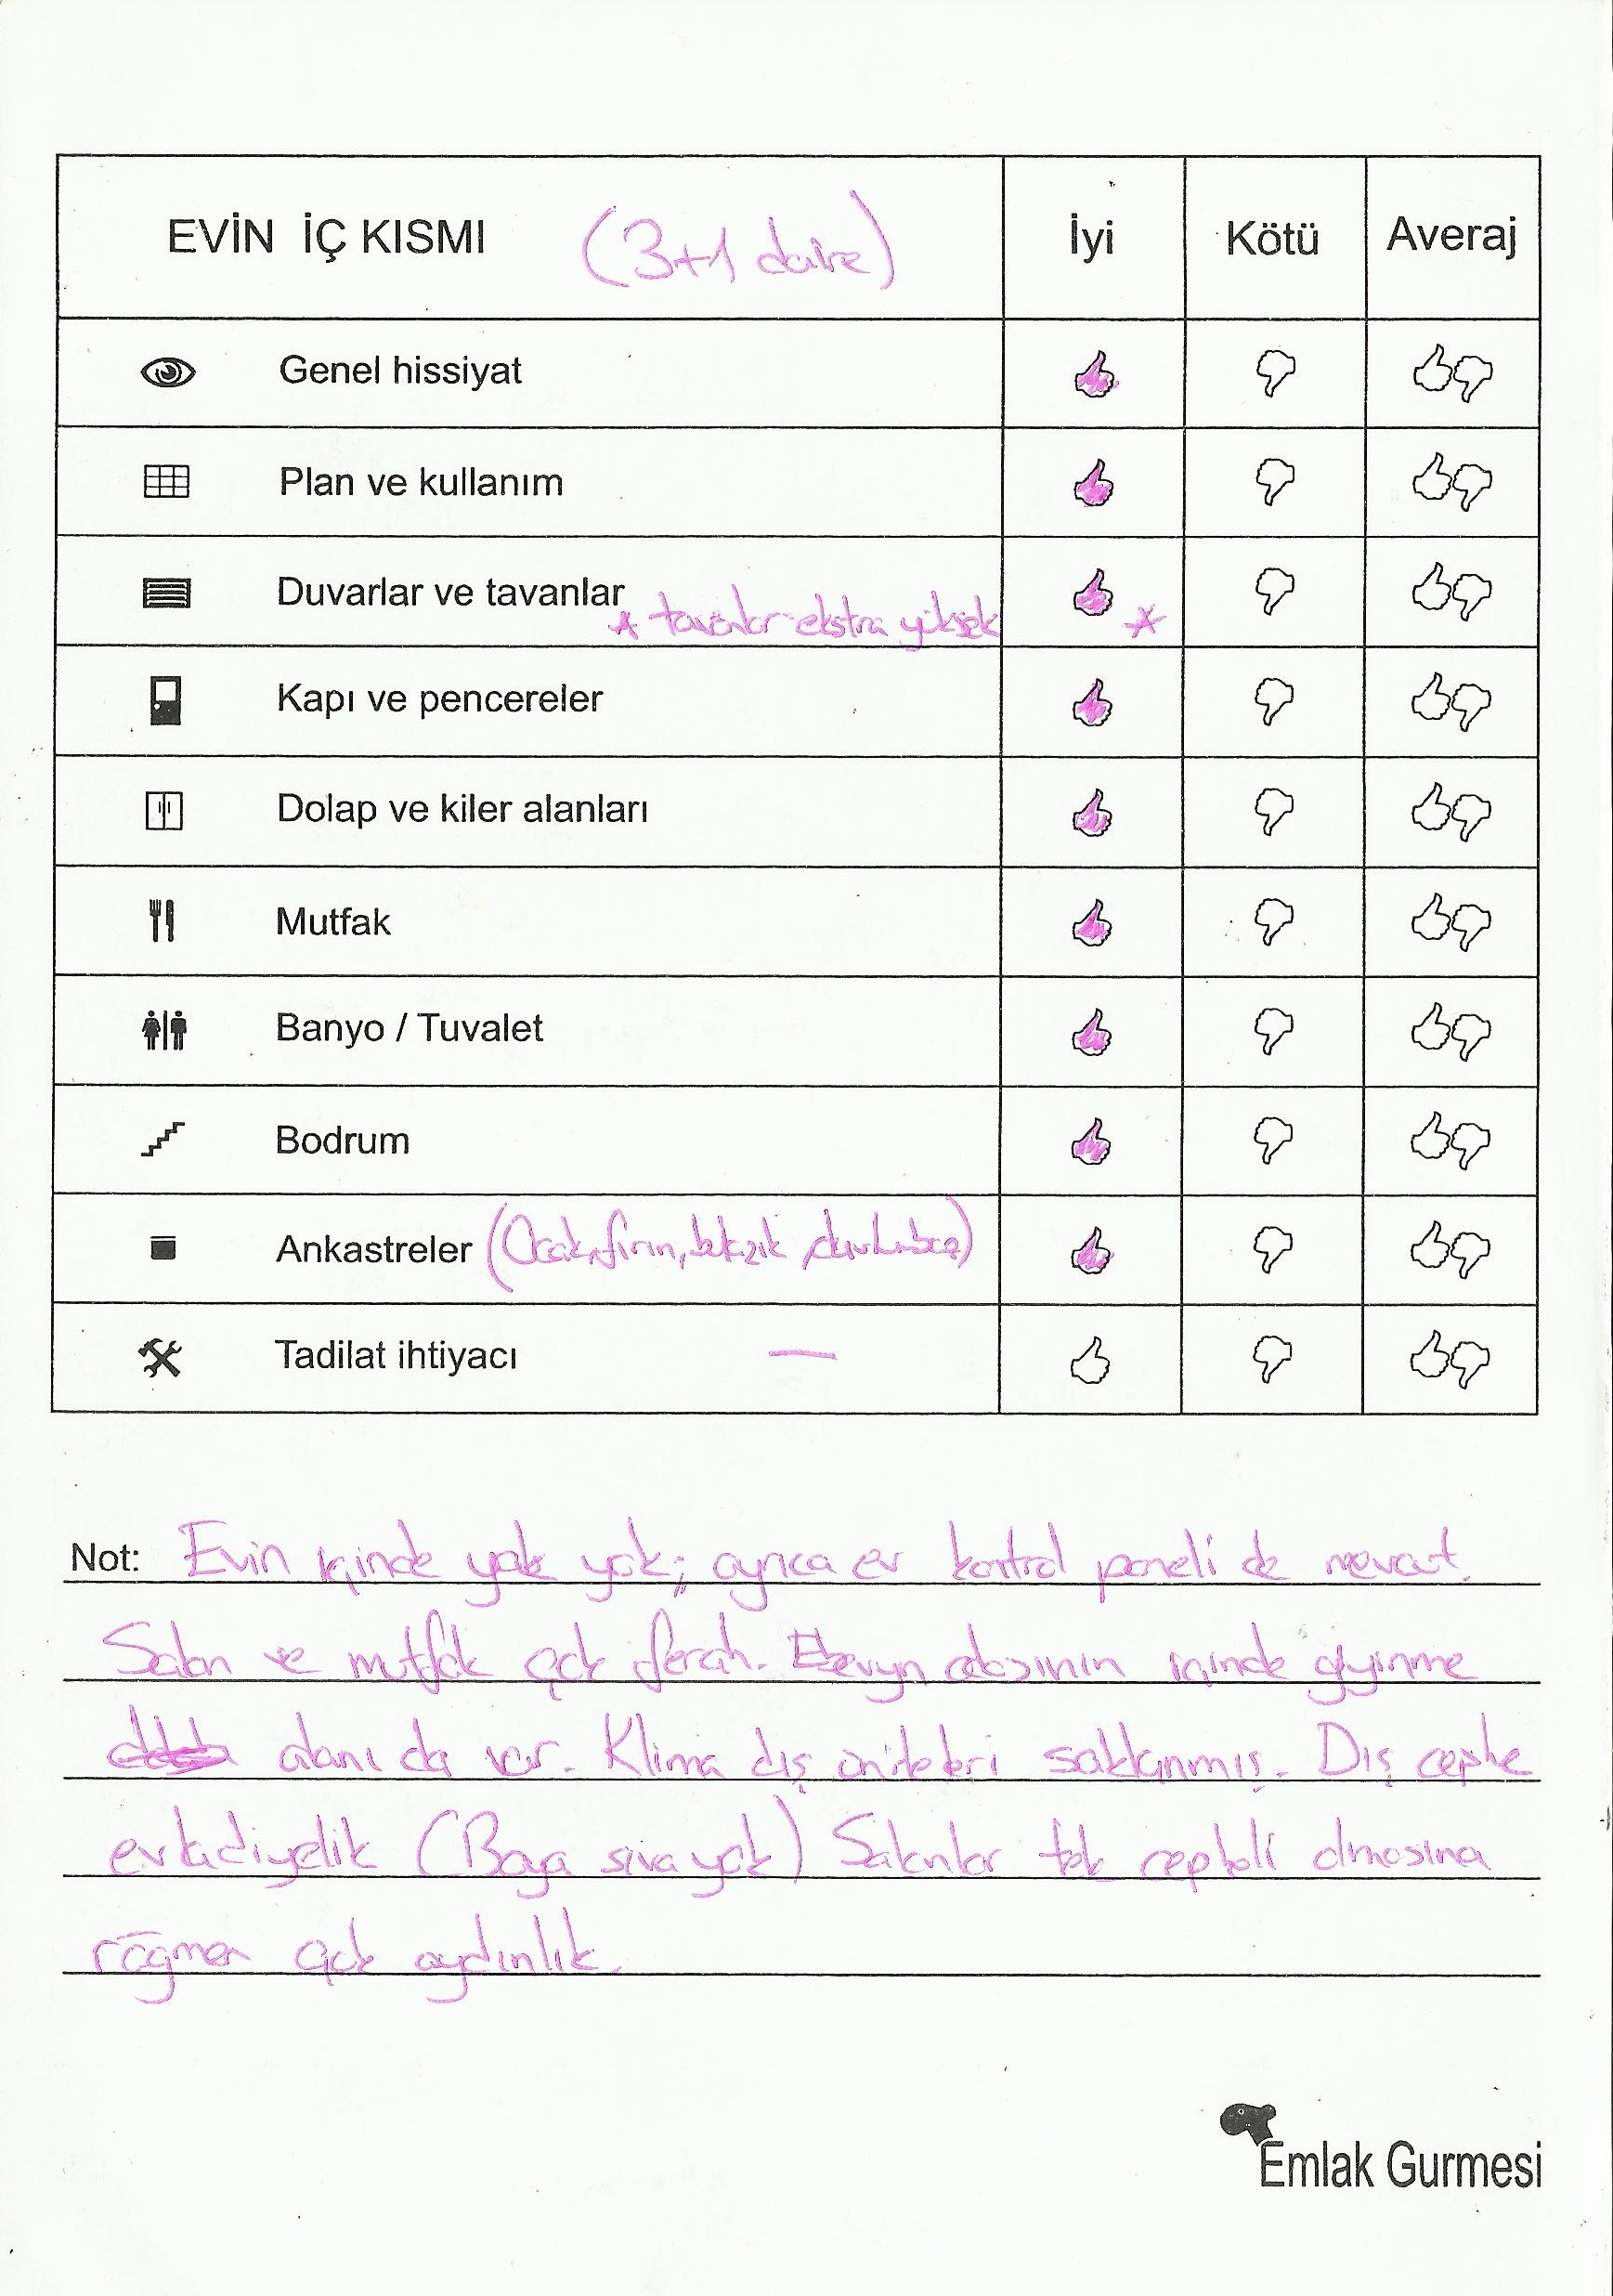 EVİN İÇ KISMI (3+1 daire) İyi Kötü Averaj
Genel hissiyat
Plan ve kullanım
Duvarlar ve tavanlar
* tavanlar ekstra yüksek *
Kapı ve pencereler
Dolap ve kiler alanları
Mutfak
Banyo / Tuvalet
Bodrum
Ankastreler (Ocak, fırın, davlumbaz)
Tadilat ihtiyacı —
Not: Evin içinde yok yok; ayrıca ev kontrol paneli de mevcut.
Salon ve mutfak çok ferah. Ebevyn odasının içinde giyinme
alanı da var. Klima dış üniteleri saklanmış. Dış cephe
evladiyelik (Boya sıva yok) Salonlar tek cepheli olmasına
rağmen çok aydınlık.
Emlak Gurmesi